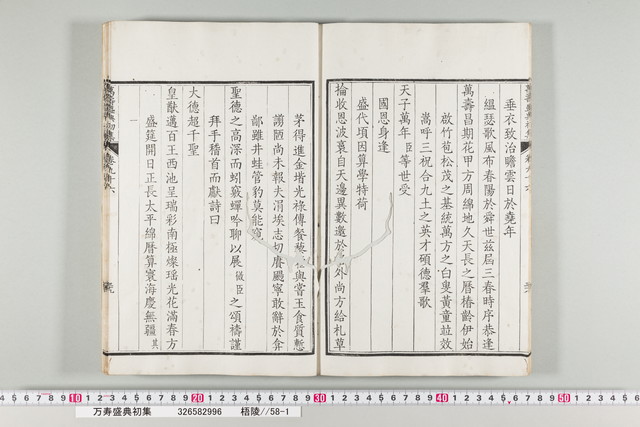 垂衣致治瞻雲日於堯年
縕瑟歌風布春陽於舜世茲屆三春時序恭逢
萬壽昌期花甲方周綿地久天長之曆椿齡伊始
放竹苞松茂之基統萬方之白叟黃童竝效
嵩呼三祝合九土之英才碩德羣歌
天子萬年臣等世受
國恩身逢
盛代頃因算學特荷
掄收恩波裒自天邊異數邀於外尚方給札草
茅得進金堦光祿傳餐藜與嘗玉食質慙
謭陋尚未報夫涓埃志切賡颺寧敢辭於弇
鄙雖井蛙管豹莫能窺
聖德之高深而蚓竅蟬吟聊以展微臣之頌禱謹
拜手稽首而獻詩曰
大德超千聖
皇猷邁百王西池呈瑞彩南極燦瑤光花滿春方
盛筵開日正長太平綿曆算寰海慶無疆其
一
万寿盛典初集 326582996 梧陵//58-1